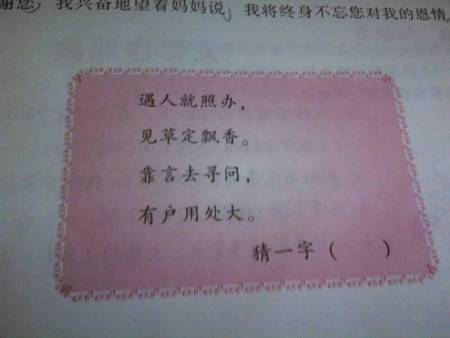 谢您，我兴奋地望着妈妈说，我将终身不忘您对我的恩情，
遇人就照办，
见草定飘香。
靠言去寻问，
有户用处大。
猜一字（　　）